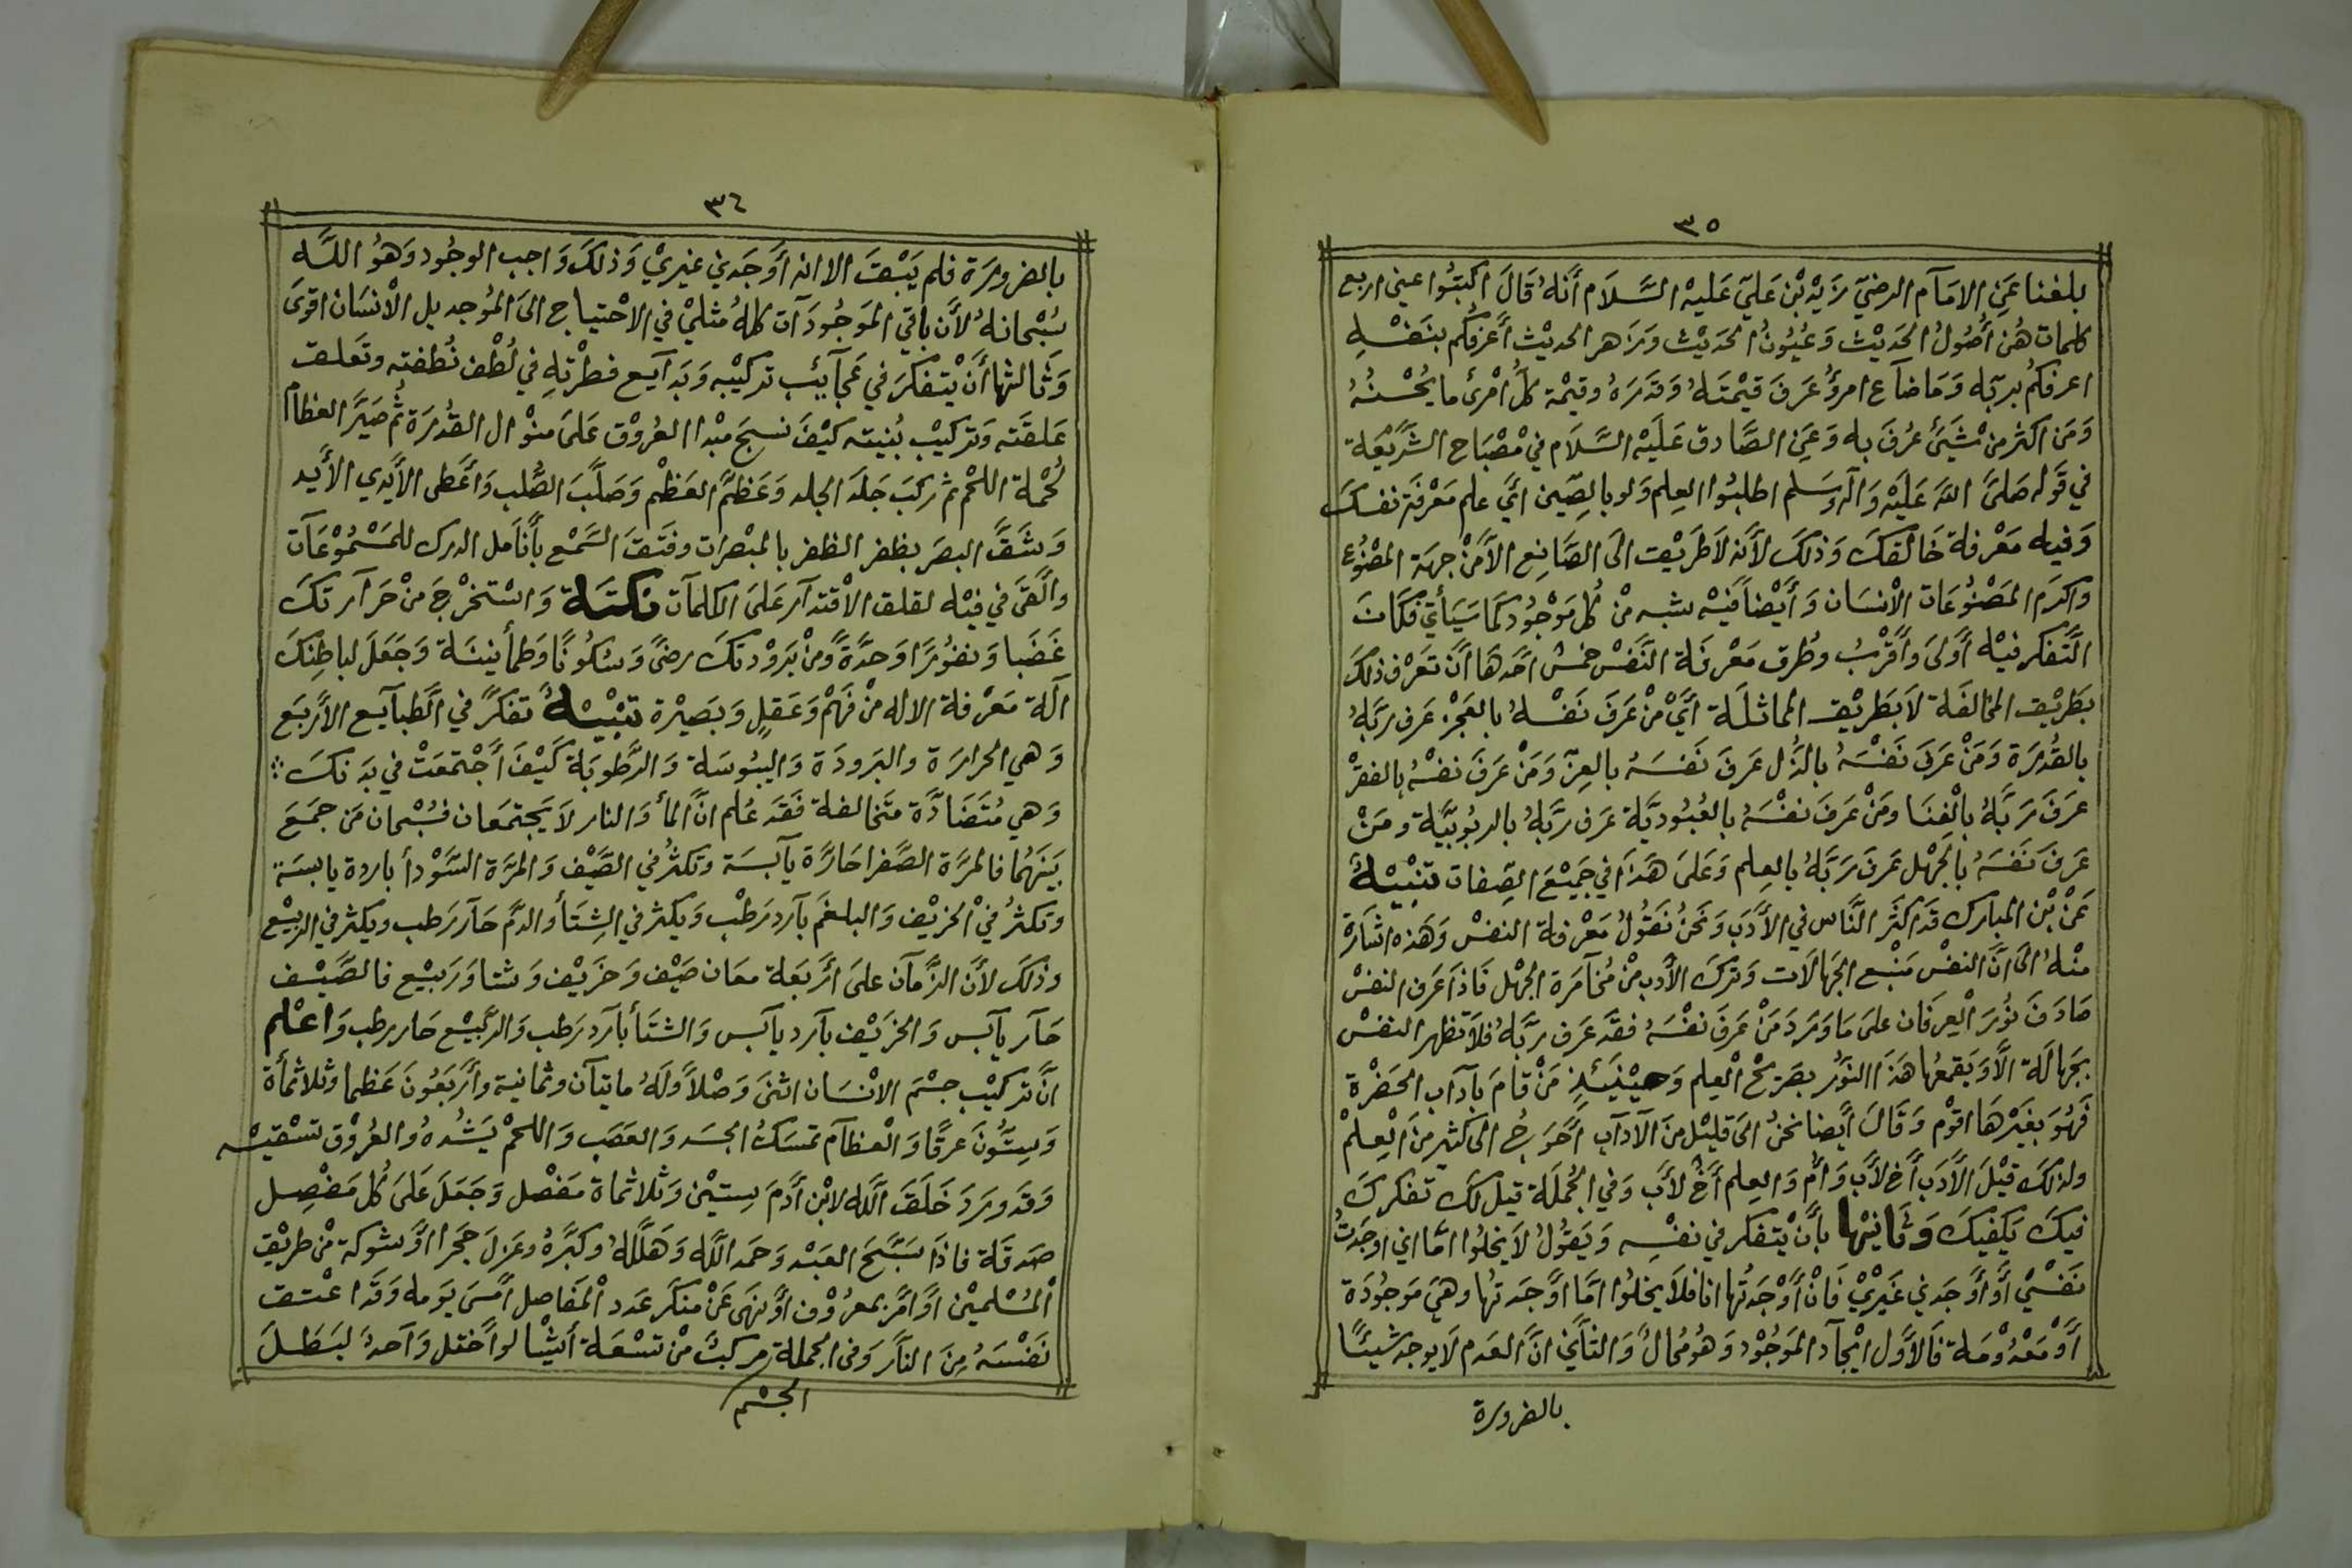 ٣٥
بلغنا عَنِ الامَآم الرضيّ زَيْد بْن عَليّ عَليْه السَّلَام أنَّهُ قَالَ اكْتبُوا عني اربع
كلمات هُن أُصُولُ الحَديْث وَعُيُونُ الحَديْث وَزَاهر الحديْث أعرَفكُم بنَفْسْهِ
اعرفكمُ بربّه وَمَا ضآع امرؤُ عَرَفَ قيْمتَهُ وَقَدرَهُ وقيمْة كلُّ امْرئ ما يُحْسْنُهُ
وَمَن اكثر منْ شَيْئ عُرفَ به وَعَنِ الصَّادق عَليَهْ السَّلَام في مْصْبَاح الشَّرَيْعَة
في قَوله صَلىَّ اللهُ عَليَهْ وَآله وسَلم اطلبُوا العِلم وَلو بالصِّين ائَ علم مَعْرفَة نفسكَ
وَفيه مَعْرفة خَالقكَ وَذلكَ لأنه لاَ طَريْقَ الىَ الصَّانِع الاَّ منْ جهَة المصْنُوع
وَاكرَم المَصْنُوعَات الأنْسَان وَأيْضاً فَيْه شبه مْن كُل مَوْجُود كَمَا سَيَأتي فكَانَ
التَّفكر فيْه أَولىَ وَأقْربُ وطُرق مَعْرفَة النَّفْس خمْس احَّدهَا أنْ تَعَرْف ذلكَ
بَطريْق المخَالفَة لاَ بَطَريْق المماثلَة ائَ مْنْ عَرَفَ نَفْسْهُ بالعَجْز عَرفَ ربَّهُ
بالقُدرَة وَمَنْ عَرَفَ نَفْسَهُ بالذُل عَرفَ نَفسَهُ بالعِزّ وَمَنْ عَرَفَ نفْسْهُ بالفقرْ
عرَفَ رَبَّهُ بالْغِنَا ومَنْ عَرَفَ نفْسَهُ بالعُبُوديَّة عَرفَ ربَّهُ بالربُوبيَّة ومَنْ
عَرفَ نَفَسَهُ بالجَهْل عَرفَ رَبَّهُ بالعِلم وَعَلىَ هَذاَ في جَمَيْع الصِّفات تَنْبيْهْ
عَنْ بْن المبارك قَد اكثَر النَّاس في الأَدَب وَنَحنُ نَقُولُ مَعْرفة النفسْ وَهَذه اشَارَة
منْهُ الىَ انَّ النفسْ مَنْبع الجَهالَات وَترَك الأَدب مْن مُخآمَرة الجهْل فَاذَا عَرفَ النفسْ
صَادَفَ نوُرَ العِرفَان علىَ مَا وَرَدَ مَنْ عَرَفَ نفْسَهُ فقَد عَرفَ رَبَّهُ فلاَ تظهر النفسْ
بجَهَالَة الاَّ وَيَقمعُها هَذَا النوُر بصَريْح العِلم وَحيْنَئذٍ مَنْ قامَ بآدَاب الحَضْرة
فَهُوَ بغيَرْهَا اقوْم وَقَالَ أيْضا نحنُ الىَ قليْل مَنَ الآدآب أَحَوجُ الى كثير مِنَ العِلمْ
ولذلكَ قيْلَ الأَدَب أخ لأَب وَأُم وَالعِلم أخُ لأَب وَفي الجُملَة قيل لكَ تَفكركَ
فيكَ يَكفيكَ وَثانيْها بأَن يْتَفكر في نفسْه وَيَقُولُ لاَ يخلُوا امّا اني اوجَدَتُ
نَفسْي أَو أَوجَدني غَيْريْ فَانْ أَوْجَدتُها انا فلاَ يخلُوا امَّا أوْجَدتهُا وهيَ مَوجُودَة
أَوْ مَعْدُومَة فالأَوَّل ايْجآد الموْجُوْد وَهُو مُحالُ وَالثَّاني انَّ العَدم لَا يوجد شيئًا
بالضرورة
٣٦
بالضرورَة فلم يَبْقَ الا انه أَوَجَدني غيريْ وَذلكَ وَاجب الوجُود وَهوُ اللَّه
سُبْحانهُ لأَن باقي المَوجُودَآت كلهُ مثليْ في الاحْتياج الىَ المُوجد بل الأنسَان اقوَىَ
وَثالثها أَنْ يْتفكرَ في عَجآئِب تركيْبه وَبَدآيع فطْرَتهِ في لُطْف نُطفته وتعَلق
عَلقَته وَتركيْب بُنيته كيْفَ نسجَ مبْدا العُروْق عَلىَ منوْال القُدرَة ثُم صَيَّر العظام
لحُمْة اللحْم ثم ركبَ جَلدَ الجلد وَعَظمَ العَظْم وَصَلَّبَ الصُّلب وَأَعَطى الأَيْدي الأيد
وَشَقَّ البصَر بظفر الظفر بالمبْصرات وفتقَ السَّمْع بأَنَامل الدرك للمَسْمُوْعَآت
وألقىَ في فيْه لقلق الأقْتدآر عَلىَ الكلمآت نكتَة وَاسْتخرْجَ منْ حَرآرتكَ
غَضَبا وَنفُورَا وَحدَّةً وَمنْ بَرَوْدتكَ رضىً وَسكُونًا وَطمأنيْنَة وَجَعَلَ لباطِنكَ
آلَة مَعَرْفة الاله مْن فَهْم وَعَقلٍ وَبَصيْرة تنْبيْهْ تَفكرَّ في الطبآيع الأَرْبَع
وَهي الحرَارَة والبَرودَة وَاليبُوسَة وَالرَّطوبَة كَيْفَ أَجْتمعَتْ في بَدَنكَ
وَهي مُتَضَادَّة متَخالفة فَقَد عُلم انَّ الماْ وَالنار لاَ يَجتمَعَان فسُبْحان مَن جمَعَ
بَينَهُما فالمرَّة الصَّفرا حَارَّة يآبسَة وتكثرُ في الصَّيْف وَالمرَّة السَّوْدأ باردة يابسَة
وتكثرُ فيْ الخريْف وَالبلغمَ بآرد رَطْب وَيكثر في الشِتَأ والدَّم حَآر رَطب ويكثر في الربيْع
وذلكَ لأَن الزَّمآن عَلىَ أربَعَة معَان صَيْف وَخرَيْف وَشتا وَرَبيْع فالصَّيْف
حَآر يآبس وَالخرَيْف بآرد يآبس وَالشتَأ بآرد رَطب وَالرَّبيْع حَار رطب وَاعْلم
انَّ تركيْب جسْم الانْسَان اثنىَ وَصْلاً وَلهُ مايتآن وثمانية وأَربَعُونَ عَظما وثلاثمأَة
وَسِتُّونَ عَرقًا وَالْعظآم تمسَكُ الجسَد وَالعَصَب وَاللحْم يَشُدهُ والعُروْق تسْقيْه
وَقَد ورَدَ خَلقَ اللَّه لابْن أَدَمَ سِتيْن وَثلاثماة مَفْصْل وَجَعَلَ عَلىَ كُل مَفْصِل
صَدقَة فاذَا سَبَّحَ العَبْد وَحَمد اللَّه وَهَلَّلهُ وكبَّرهُ وعَزلَ حَجرا اوَشوكة منْ طريْق
المُسْلميْن أَو امَّر بمعرُوْف أَو نهَى عَنْ منكَر عَدد المَفَاصل أَمسَى يَومه وَقَد اعْتق
نَفسْهُ مِنَ النآر وَفى الجملة مركبُ منْ تسْعَة أشيْآ لو أَختل وَآحدُ لبَطلَ
الجسْم